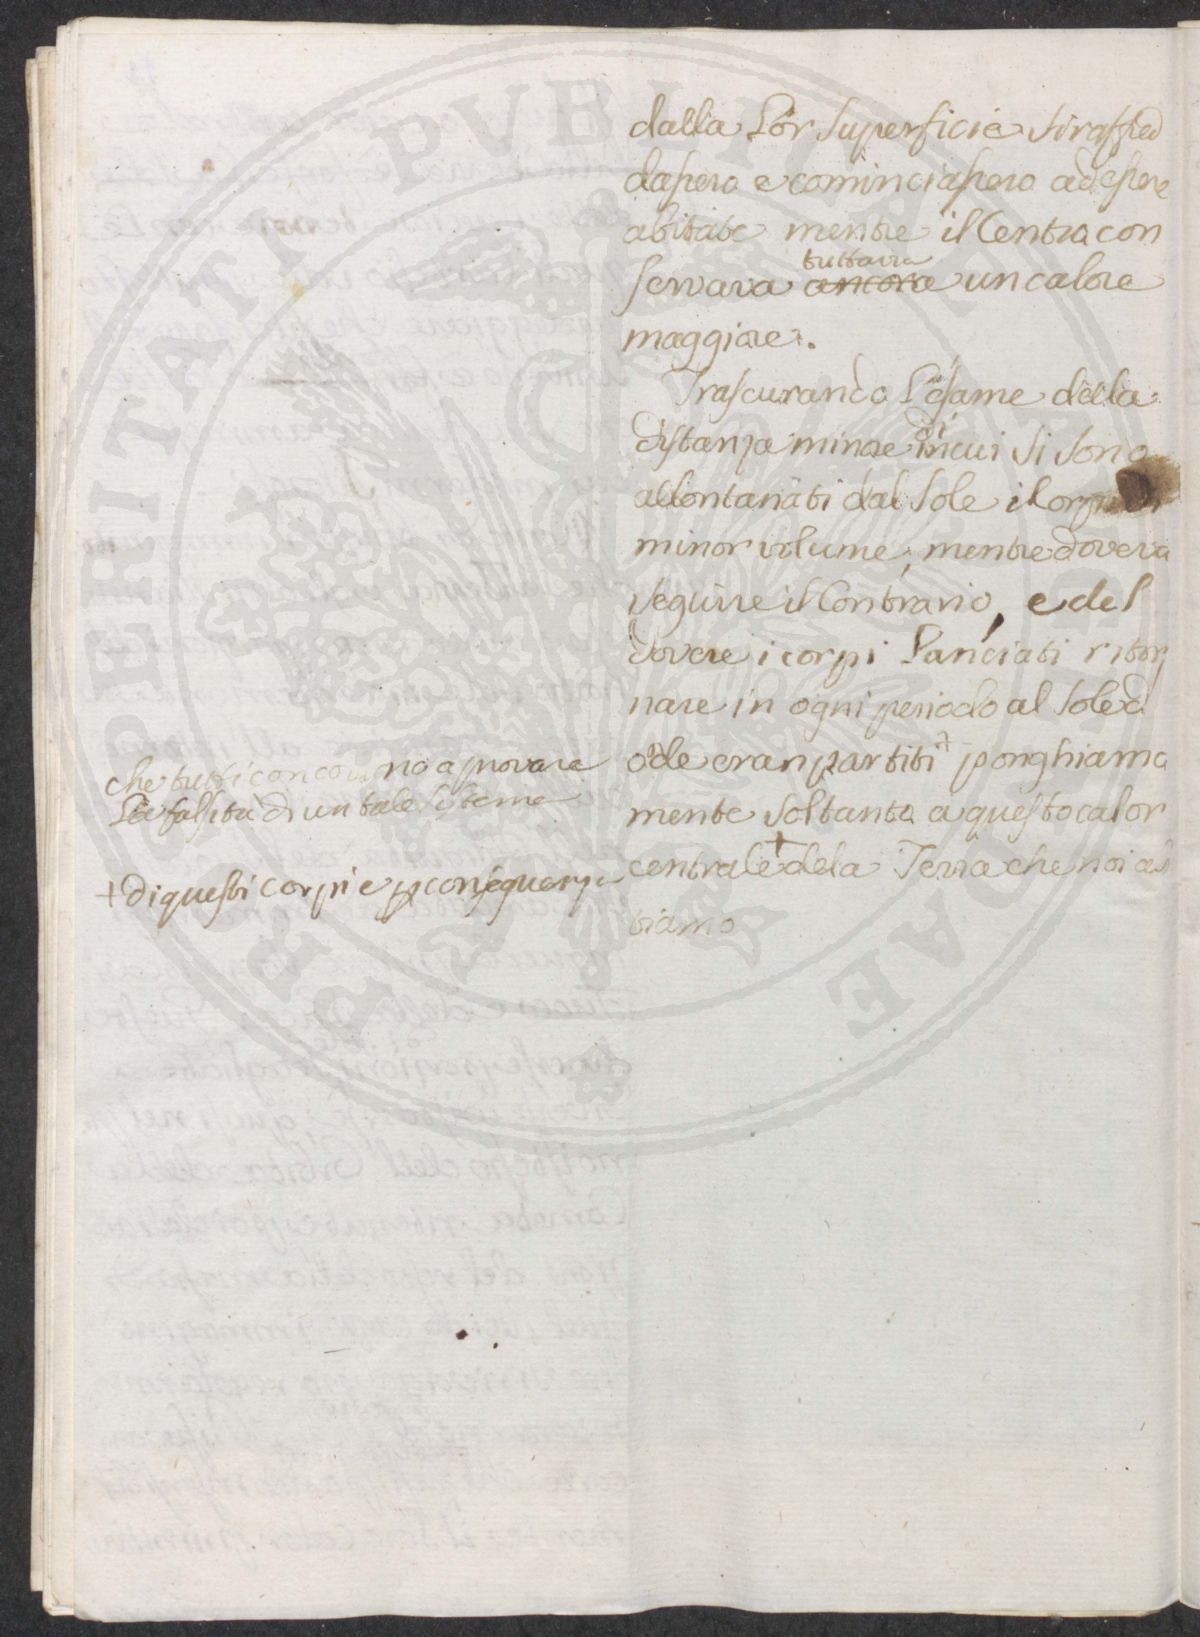 dalla lor superficie si raffred
dassero e cominciassero ad essere
abitate mentre il Centro con
tuttavia
servava ancora un calore
maggiore.
Trascurando l'esame della
distanza minore di
in cui si sono
allontanati dal Sole i Corpi di
minor volume, mentre doveva
seguire il Contrario, e del
dovere i corpi lanciati ritor
nare in ogni periodo al Sole d
onde eran partiti ponghiamo
mente soltanto a questo calor
centrale + dela Terra che noi ab
biamo
che tutti concorrono a provare
la falsità di un tale sistema
+ di questi corpi e p conseguenza
PERITATI PVBLICAE